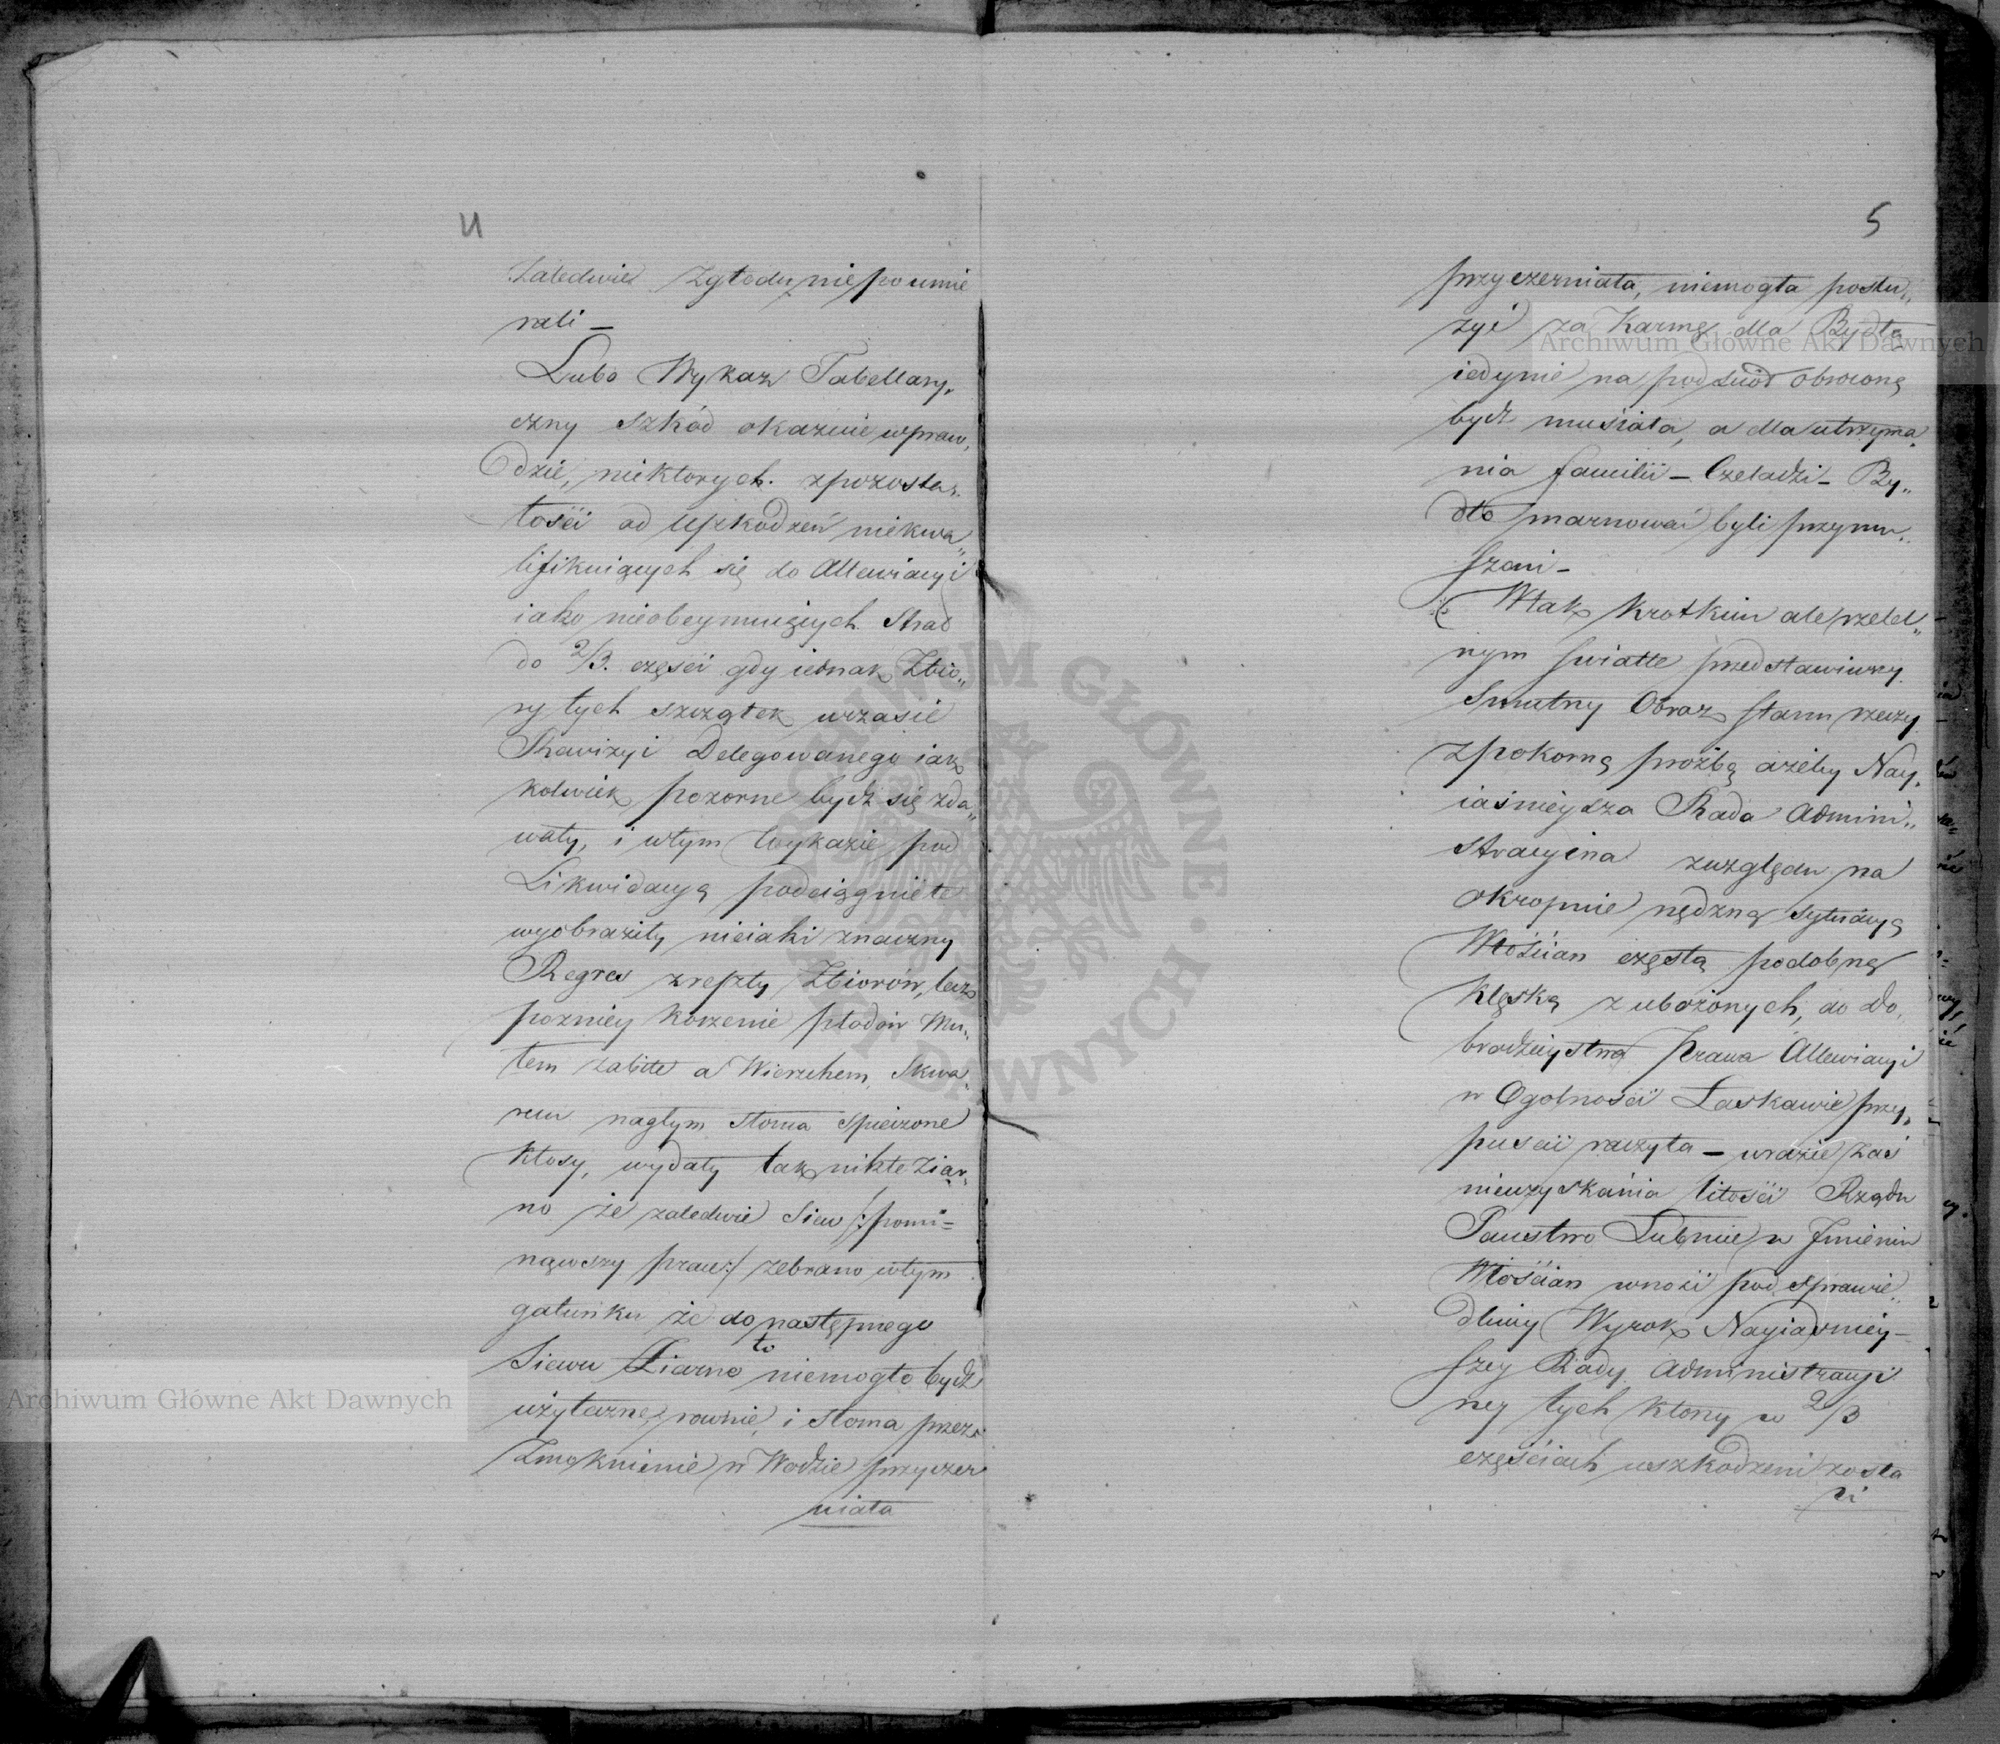 4
Zaledwie zgłodu niepoumie
rali –
Lubo Wykaz Tabellary„
czny szkód okazuie wpraw„
dzie, niektorych zpozosta„
łości od uszkodzeń niekwa„
lifikuiących się do Allewiacyi
iako nieobeymuiących Strat
do 2/3 części gdy iednak Zbio„
ry tych szczątek wczasie
Rewizyi Delegowanego iak
kolwiek pozorne bydź się zda„
wały, i wtym Wykazie pod
Likwidacyą podciągnięte
wyobraziły nieiaki znaczny
Regres zreszty Zbiorów, lecz
pozniey korzenie płodów Mu„
łem zabite a Wierzchem Skwa„
rem nagłym słoma spieczone
kłosy, wydały tak nikłe Ziar„
no że zaledwie Siew /: pomi=
nąwszy prace :/ zebrano wtym
gatunku że do następnego
Siewu Ziarno to niemogło bydź
użyteczne, rownie i słoma przez
Zmoknienie w Wodzie przyczer
niała
5
przyczerniała, niemogła posłu„
żyć za Karmę dla Bydła
iedynie na podściół obrocona
bydź musiała, a dla utrzyma„
nia familii – Czeladzi – By„
dło marnować byli przymu„
szeni –
Wtak krotkim ale rzetel„
nym świetle przedstawiwszy
Smutny Obraz stanu rzeczy
zpokorną prożbą ażeby Nay„
iaśnieysza Rada Admini„
stracyina zwzględu na
okropnie nędzną sytuacyą
Włościan częstą podobną
klęską zubożonych, do do„
brodzieystwa prawa Allewiacyi
w Ogolności Łaskawie przy„
puscić raczyła – wrazie zaś
nieuzyskania litości Rządu
Państwo Lubnie w Jmieniu
Włościan wnosi pod sprawie„
dliwy Wyrok Nayiasniey–
szey Rady Administracyi
ney tych ktorzy w 2/3
częściach uszkodzeni zosta
li
Archiwum Główne Akt Dawnych
Archiwum Główne Akt Dawnych
ARCHIWUM GŁÓWNE • AKT DAWNYCH •